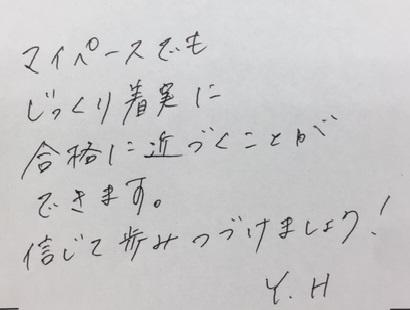 マイペースでも
じっくり着実に
合格に近づくことが
できます。
信じて歩みつづけましょう!
Y.H